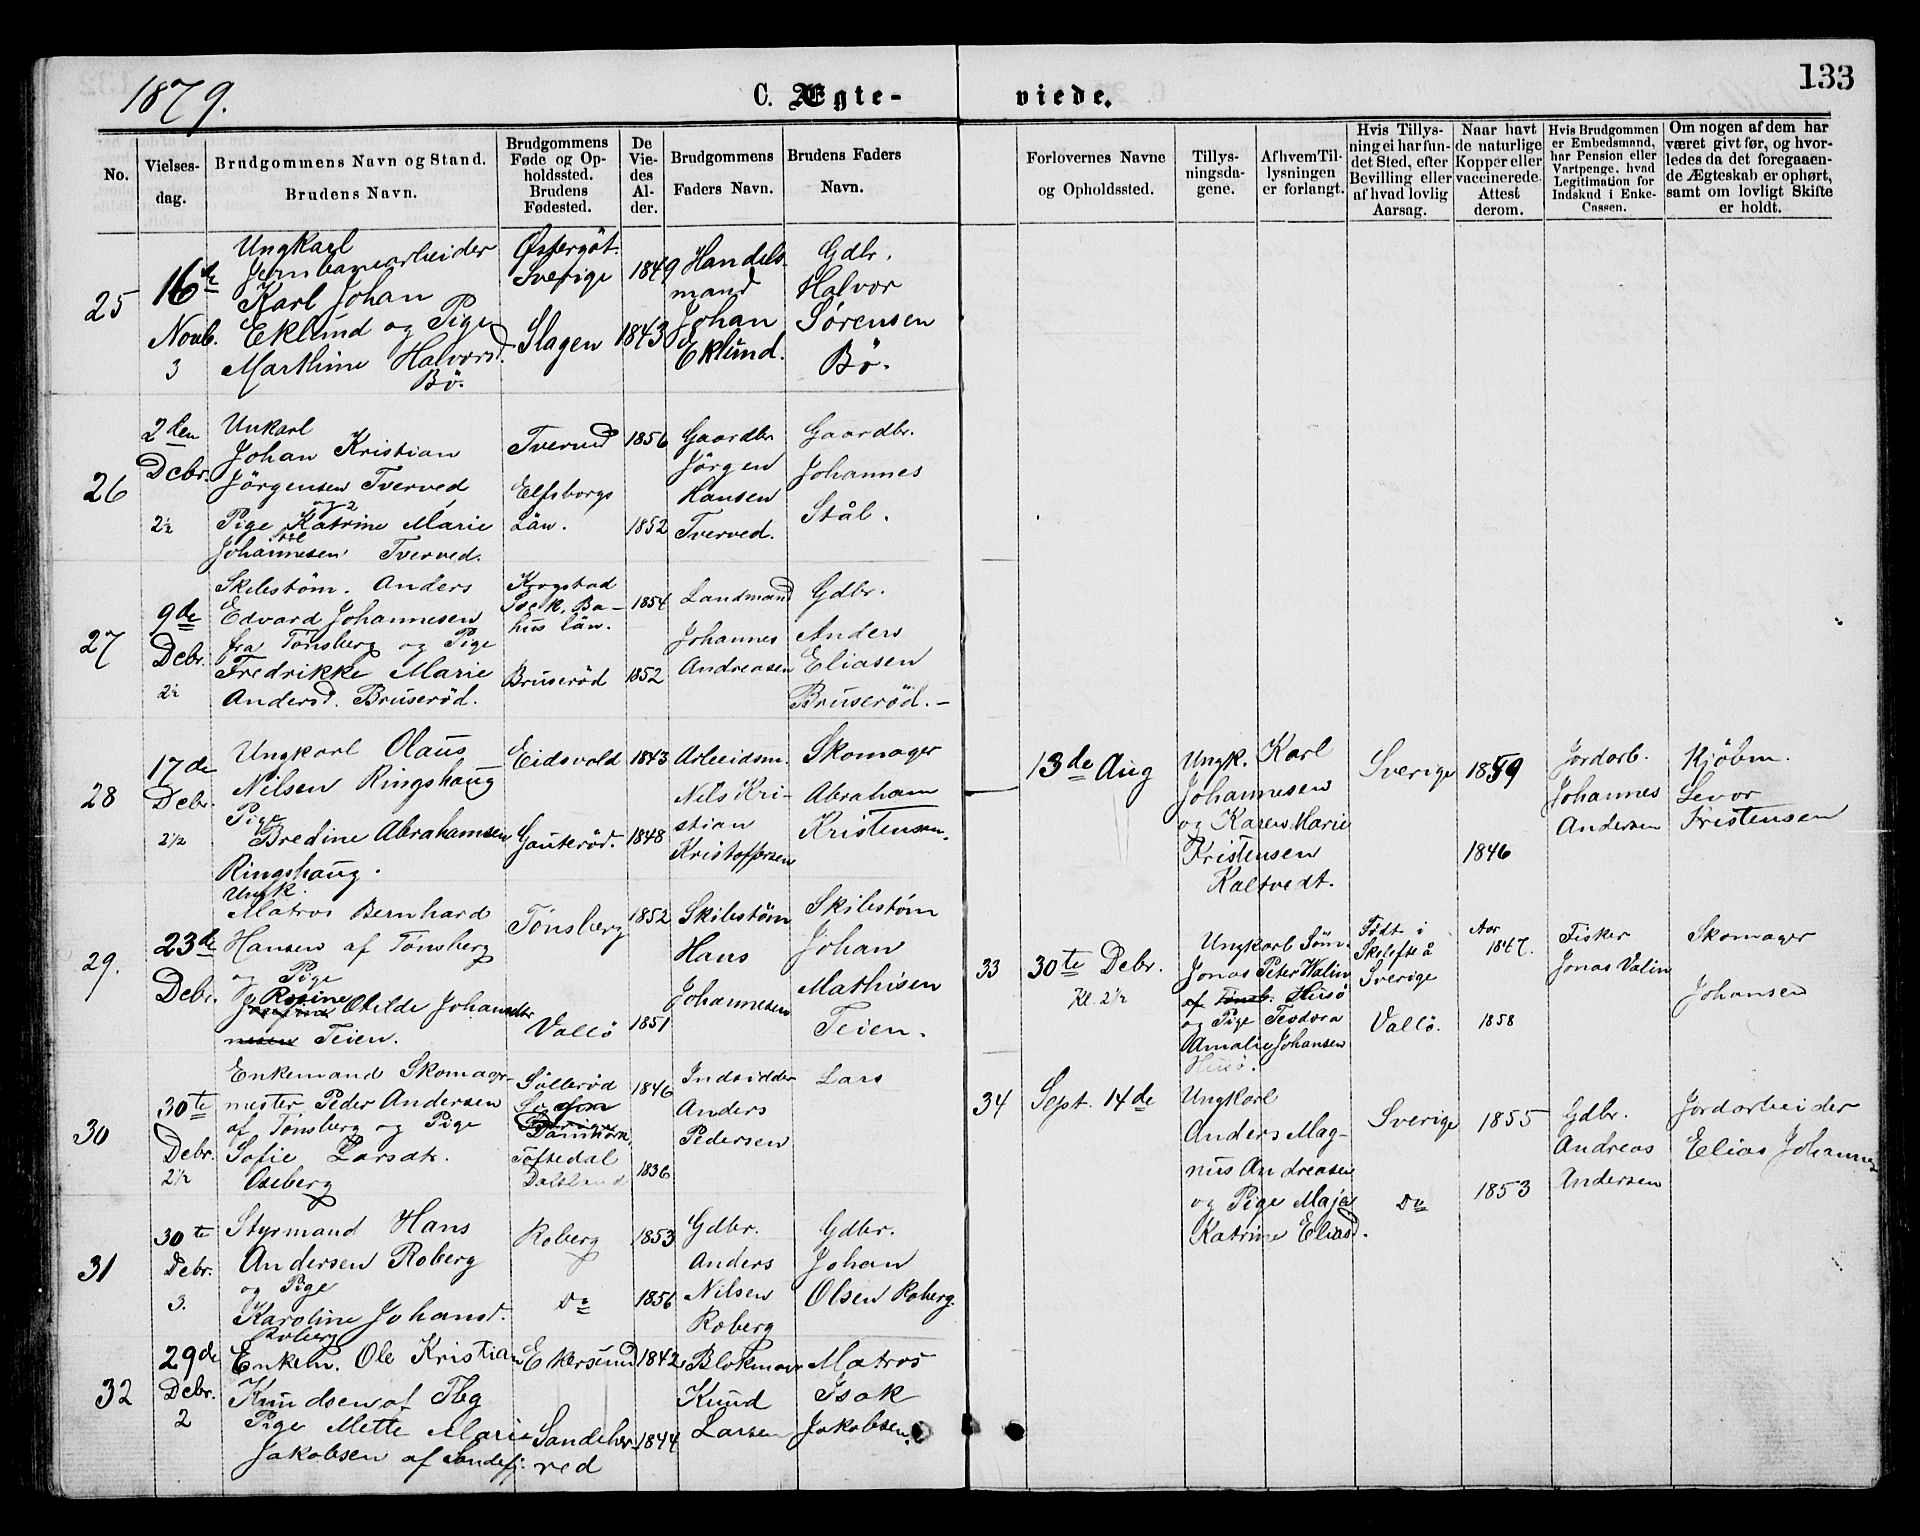 1879.
C. Ægte-
viede.
133
No.
Vielses-
dag.
Brudgommens Navn og Stand.
Brudens Navn.
Brudgommens
Føde og Op-
holdssted.
Brudens
Fødested.
De
Vie-
des
Al-
der.
Brudgommens
Faders Navn.
Brudens Faders
Navn.
Forlovernes Navne
og Opholdssted.
Tillys-
ningsda-
gene.
Af hvem Til-
lysningen
er forlangt.
Hvis Tillys-
ning ei har fun-
det Sted, efter
Bevilling eller
af hvad lovlig
Aarsag.
Naar havt
de naturlige
Kopper eller
vaccinerede.
Attest
derom.
Hvis Brudgommen
er Embedsmand,
har Pension eller
Vartpenge, hvad
Legitimation for
Indskud i Enke-
Cassen.
Om nogen af dem har
været givt før, og hvor-
ledes da det foregaaen-
de Ægteskab er ophørt,
samt om lovligt Skifte
er holdt.
25
16de
Novb.
3
Ungkarl
Jernbanearbeider
Karl Johan
Eklund og Pige
Marthine Halvorsd.
Bö.
Østergöt.
Sverige
Slagen
1849
1843
Handels-
mand
Johan
Eklund.
Gdbr.
Halvor
Sørensen
Bö.
26
2den
Debr.
2½
Unkarl
Johan Kristian
Jörgensen Tverved
og
Pige Katrine Marie
Johannesen Tverved.
Tverved
Elfsborgs
Län.
1856
1852
Gaardbr
Jörgen
Hansen
Tverved.
Gaardbr.
Johannes
Stål.
27
9de
Debr.
2½
Skibstöm. Anders
Edvard Johannesen
fra Tönsberg og Pige
Fredrikke Marie
Andersd. Bruseröd.
Krogstad
Sok. Ba-
hus län.
Bruseröd
1854
1852
Landmand
Johannes
Andreasen
Gdbr.
Anders
Eliasen
Bruseröd.-
28
17de
Debr.
2½
Ungkarl Olaus
Nilsen Ringshaug
Pige
Bredine Abrahamsen
Ringshaug.
Eidsvold
Gauteröd.
1843
1848
Arbeidsm.
Nils Kri-
stian
Kristoffersen
Skomager
Abraham
Kristensen.
29.
23de
Debr.
Ungk.
Matros Bernhard
Hansen af Tönsberg
og Pige
Rosine Otilde Johansdtr
Teien.
Tönsberg
Vallö
1852
1851
Skibstöm
Hans
Johannesen
Skibstöm
Johan
Mathisen
Teien.
30
30te
Debr.
2½
Enkemand Skomager-
mester Peder Andersen
af Tönsberg og Pige
Sofie Larsdt.
Oseberg
Sölleröd
Danmark
Töftedal
Dalsland
1846
1836
Indsidder
Anders
Pedersen
Lars
31
30te
Debr.
3.
Styrmand Hans
Andersen Roberg
og Pige
Karoline Johansd.
Roberg
Roberg
Do
1853
1856
Gdbr.
Anders
Nilsen
Roberg
Gdbr.
Johan
Olsen Roberg.
32
29de
Debr.
2
Enkem. Ole Kristian
Knudsen af Tbg
Pige Mette Marie
Jakobsen af Sandefj.
Ekersund
Sandeher-
red
1842
1844
Blokmager
Knud
Larsen
Matros
Isak
Jakobsen.
13de Aug
Ungk. Karl
Johannesen
og Karen Marie
Kristensen
Kaltvedt.
Sverige
1859
1846
Jordarb.
Johannes
Andersen
Kjöbm.
Kristensen
33
30te Debr.
Kl. 2½
Ungkarl Söm.
Jonas Peter Walin
af Tönsb. Husö
og Pige Teodora
Amalie Johansen
Husö.
Födt i
Skelefteå
Sverige
Vallö.
Aar
1847.
1858
Fisker
Jonas Valin
Skomager
Johansen
34
Sept. 14de
Ungkarl
Anders Mag-
nus Andreasen
og Pige Maja
Katrine Eliasd.
Sverige
Do
1855
1853
Gdbr.
Andreas
Andersen
Jordarbeider
Elias Johannes